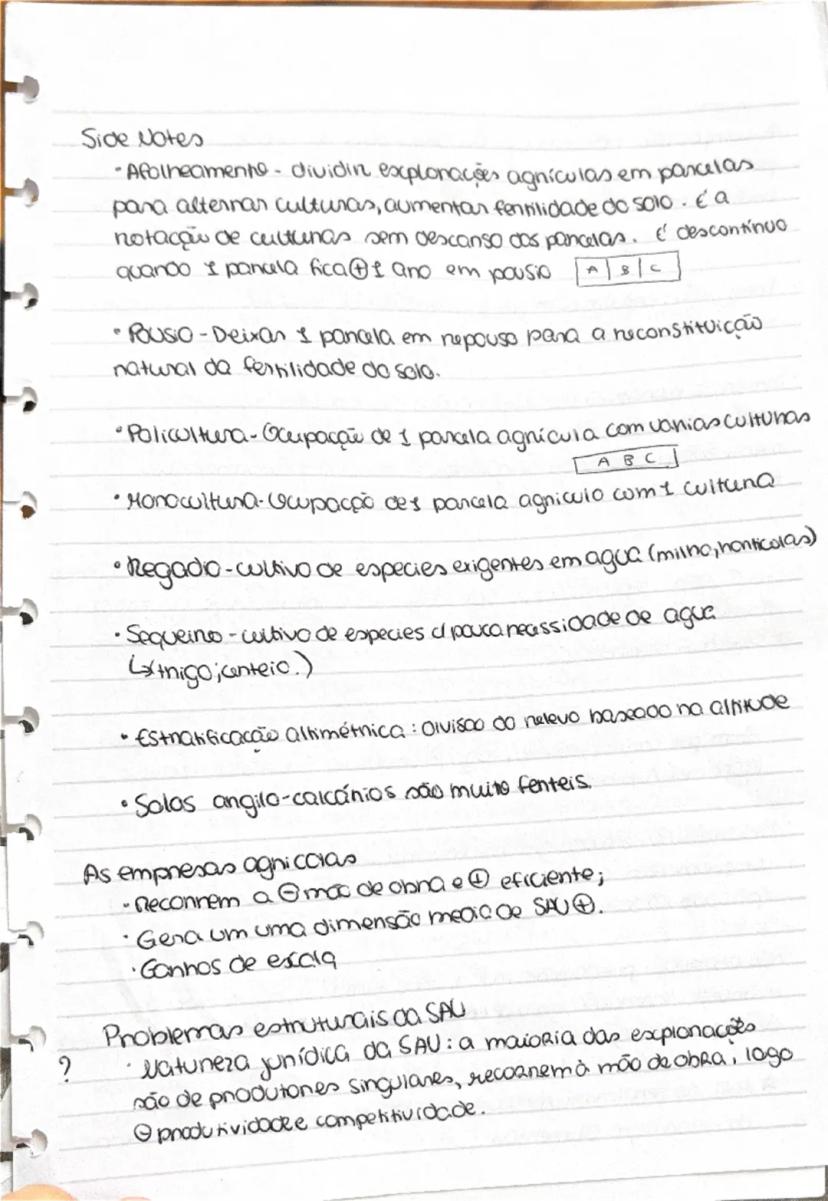 Side Notes
• Afolheamento - dividir explorações agrículas em parcelas
para alternar culturas, aumentar fertilidade do solo. É a
rotacção de culturas sem descanso das parcelas. É descontínuo
quando 1 parcela fica ⊕ 1 ano em pousio A | B | C
• Pousio - Deixar 1 parcela em repouso para a reconstituição
natural da fertilidade do solo.
• Policultura - Ocupacção de 1 parcela agrícula com varias culturas
A B C
• Monocultura - Ocupacção de 1 parcela agriculo com 1 cultura
• Regadio - cultivo de especies exigentes em agua (milho, horticolas)
• Sequeiro - cultivo de especies c/ pouca necessidade de agua
(↳ trigo; centeio.)
• Estratificacção altimétrica : divisao do relevo baseado na altitude
• Solos argilo-calcários são muito ferteis.
As empresas agricolas
• Recorrem a ⊖ mão de obra e ⊕ eficiente;
• Gera um uma dimensão media de SAU ⊕.
• Ganhos de escala
Problemas estruturais da SAU
? • Natureza jurídica da SAU : a maioria das explorações
são de produtores singulares, recorrem à mão de obra, logo
⊖ produtividade e competitividade.